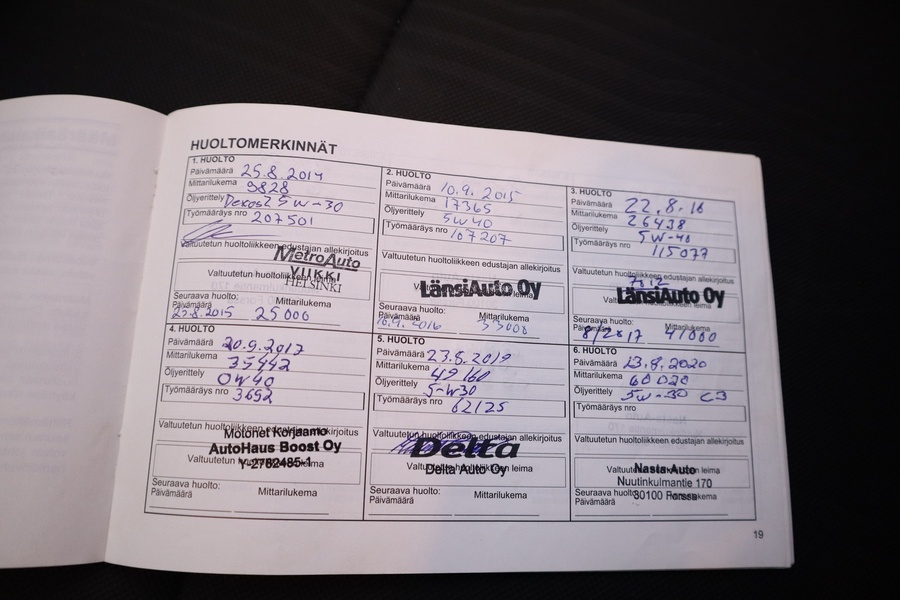 HUOLTOMERKINNÄT
1. HUOLTO
Päivämäärä 25.8.2014
Mittarilukema 9828
Öljyerittely 5W-30
Työmääräys nro 207501
Valtuutetun huoltoliikkeen edustajan allekirjoitus
MetroAuto
VIIKKI
HELSINKI
Valtuutetun huoltoliikkeen leima
Seuraava huolto:
Päivämäärä Mittarilukema
25.8.2015 25000
2. HUOLTO
Päivämäärä 10.9.2015
Mittarilukema 17365
Öljyerittely 5W40
Työmääräys nro 107207
Valtuutetun huoltoliikkeen edustajan allekirjoitus
LänsiAuto Oy
Seuraava huolto:
Päivämäärä Mittarilukema
10.9.2016 33000
3. HUOLTO
Päivämäärä 22.8.16
Mittarilukema 26438
Öljyerittely 5W-40
Työmääräys nro 115077
Valtuutetun huoltoliikkeen edustajan allekirjoitus
LänsiAuto Oy
Seuraava huolto:
Päivämäärä Mittarilukema
8/2017 41000
4. HUOLTO
Päivämäärä 20.9.2017
Mittarilukema 35442
Öljyerittely 0W40
Työmääräys nro 3692
Valtuutetun huoltoliikkeen edustajan allekirjoitus
Motonet Korjaamo
AutoHaus Boost Oy
Y-2782485-1
Seuraava huolto:
Päivämäärä Mittarilukema
5. HUOLTO
Päivämäärä 23.8.2019
Mittarilukema 49160
Öljyerittely 5-W30
Työmääräys nro 62125
Valtuutetun huoltoliikkeen edustajan allekirjoitus
Delta
Delta Auto Oy
Seuraava huolto:
Päivämäärä Mittarilukema
6. HUOLTO
Päivämäärä 13.8.2020
Mittarilukema 60020
Öljyerittely 5W-30 C3
Työmääräys nro
Valtuutetun huoltoliikkeen edustajan allekirjoitus
Nasta Auto
Nuutinkulmantie 170
30100 Forssa
Seuraava huolto:
Päivämäärä Mittarilukema
19